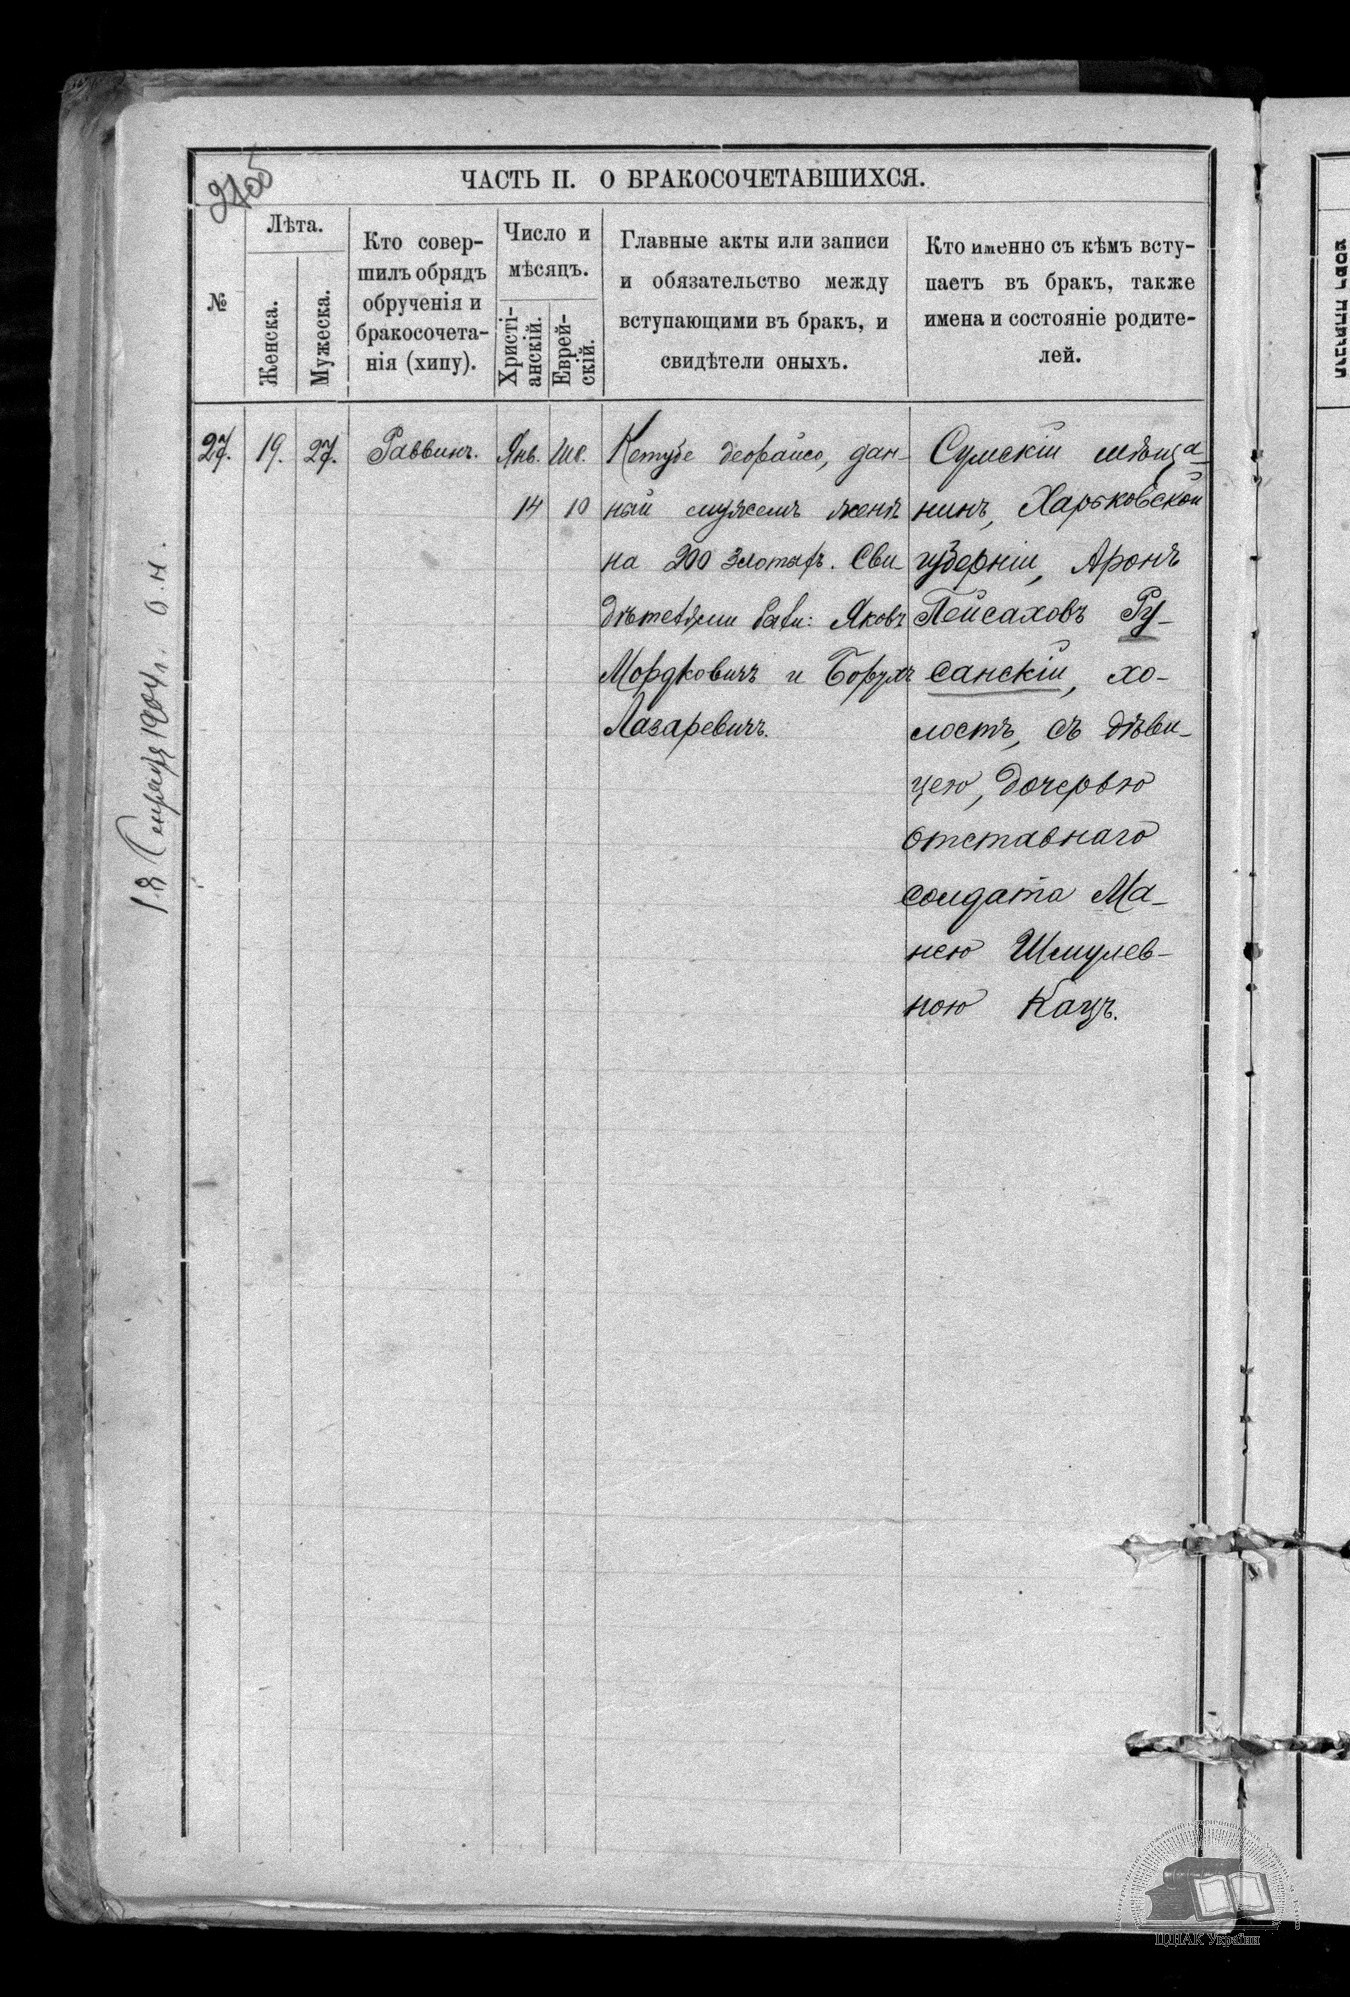 ЧАСТЬ II. О БРАКОСОЧЕТАВШИХСЯ.
№
Лѣта.
Женска.
Мужеска.
Кто совер-
шилъ обрядъ
обрученія и
бракосочета-
нія (хипу).
Число и
мѣсяцъ.
Христі-
анскій.
Еврей-
скій.
Главные акты или записи
и обязательство между
вступающими въ бракъ, и
свидѣтели оныхъ.
Кто именно съ кѣмъ всту-
паетъ въ бракъ, также
имена и состояніе родите-
лей.
27.
19.
27.
Раввинъ.
Янв.
14
Шв.
10
Кетубе деорайсо, дан-
ный мужемъ женѣ
на 200 злотыхъ. Сви-
дѣтелями были: Яковъ
Мордковичъ и Борухъ
Лазаревичъ.
Сумскій мѣща-
нинъ, Харьковской
губерніи, Аронъ
Пейсаховъ Ру-
санскій, хо-
лостъ, съ дѣви-
цею, дочерью
отставнаго
солдата Ма-
нею Шмулев-
ною Кацъ.
18 1904 г. О. Н.
ЦДІАК України